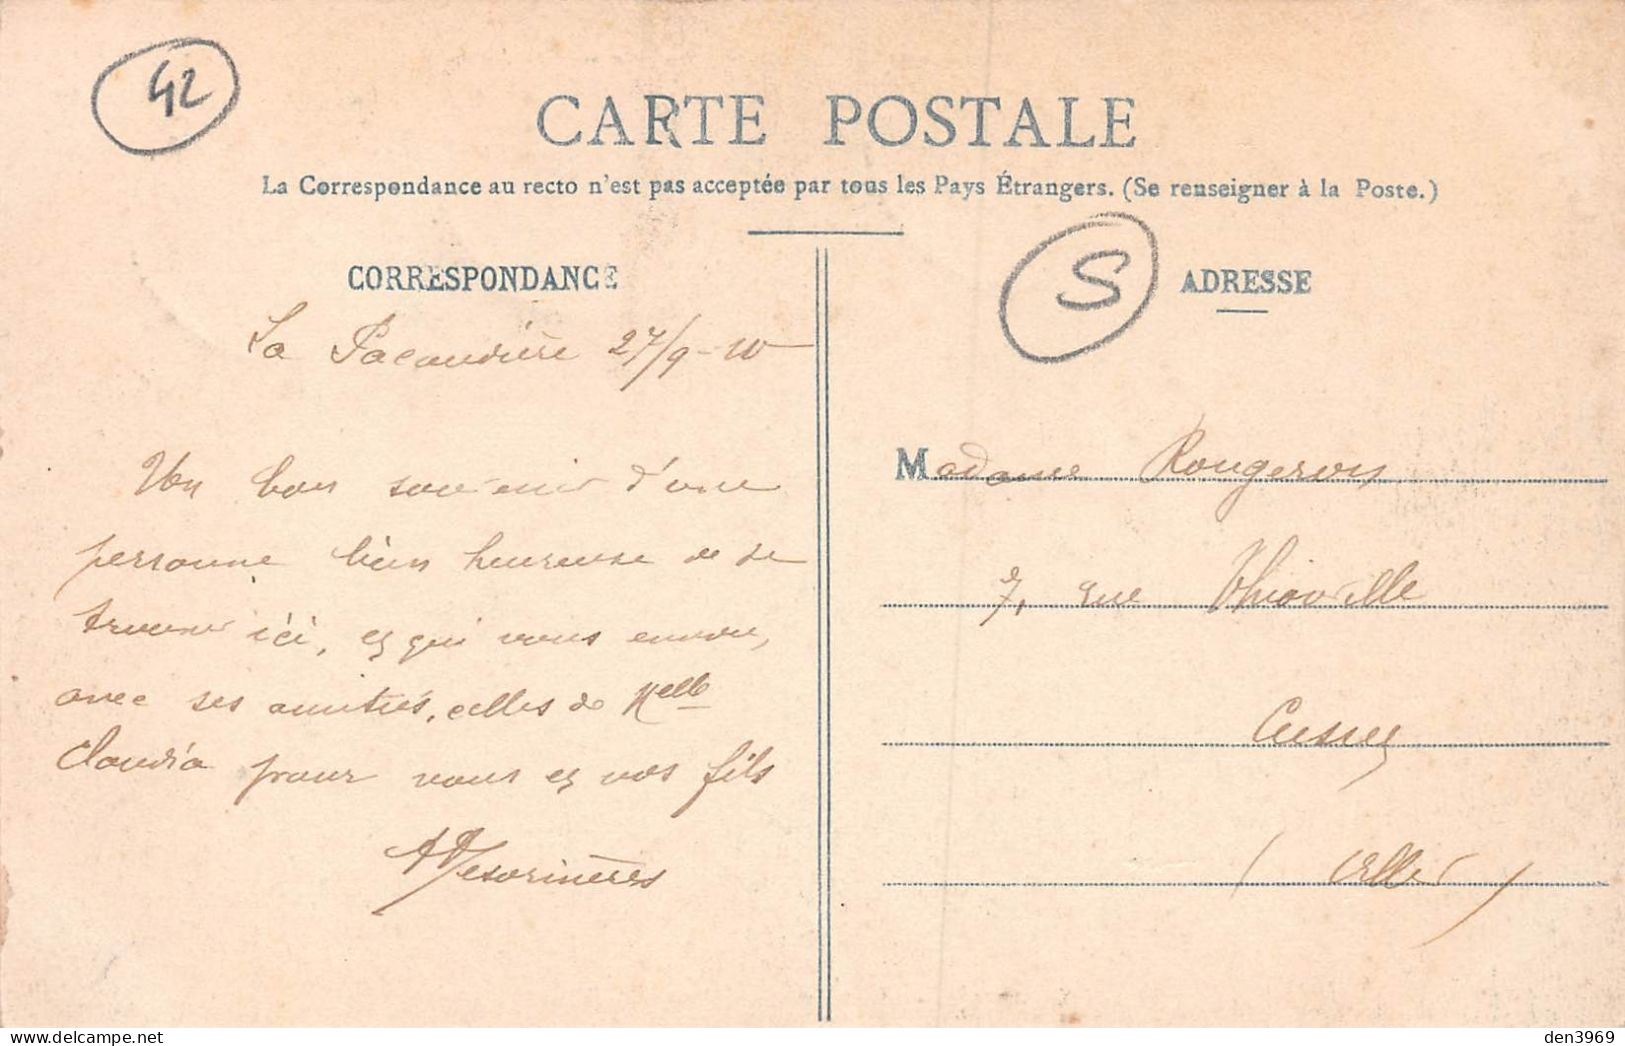 42
CARTE POSTALE
La Correspondance au recto n'est pas acceptée par tous les Pays Étrangers. (Se renseigner à la Poste.)
CORRESPONDANCE
La Pacaudière 27/9-10
Un bon souvenir d'une
personne bien heureuse de se
trouver ici, et qui vous envoie,
avec ses amitiés, celles de Melle
Claudia pour vous et vos fils
S
ADRESSE
Madame Rougeron
7, rue Thionville
Cusset
(Allier)
delcampe.net
den3969